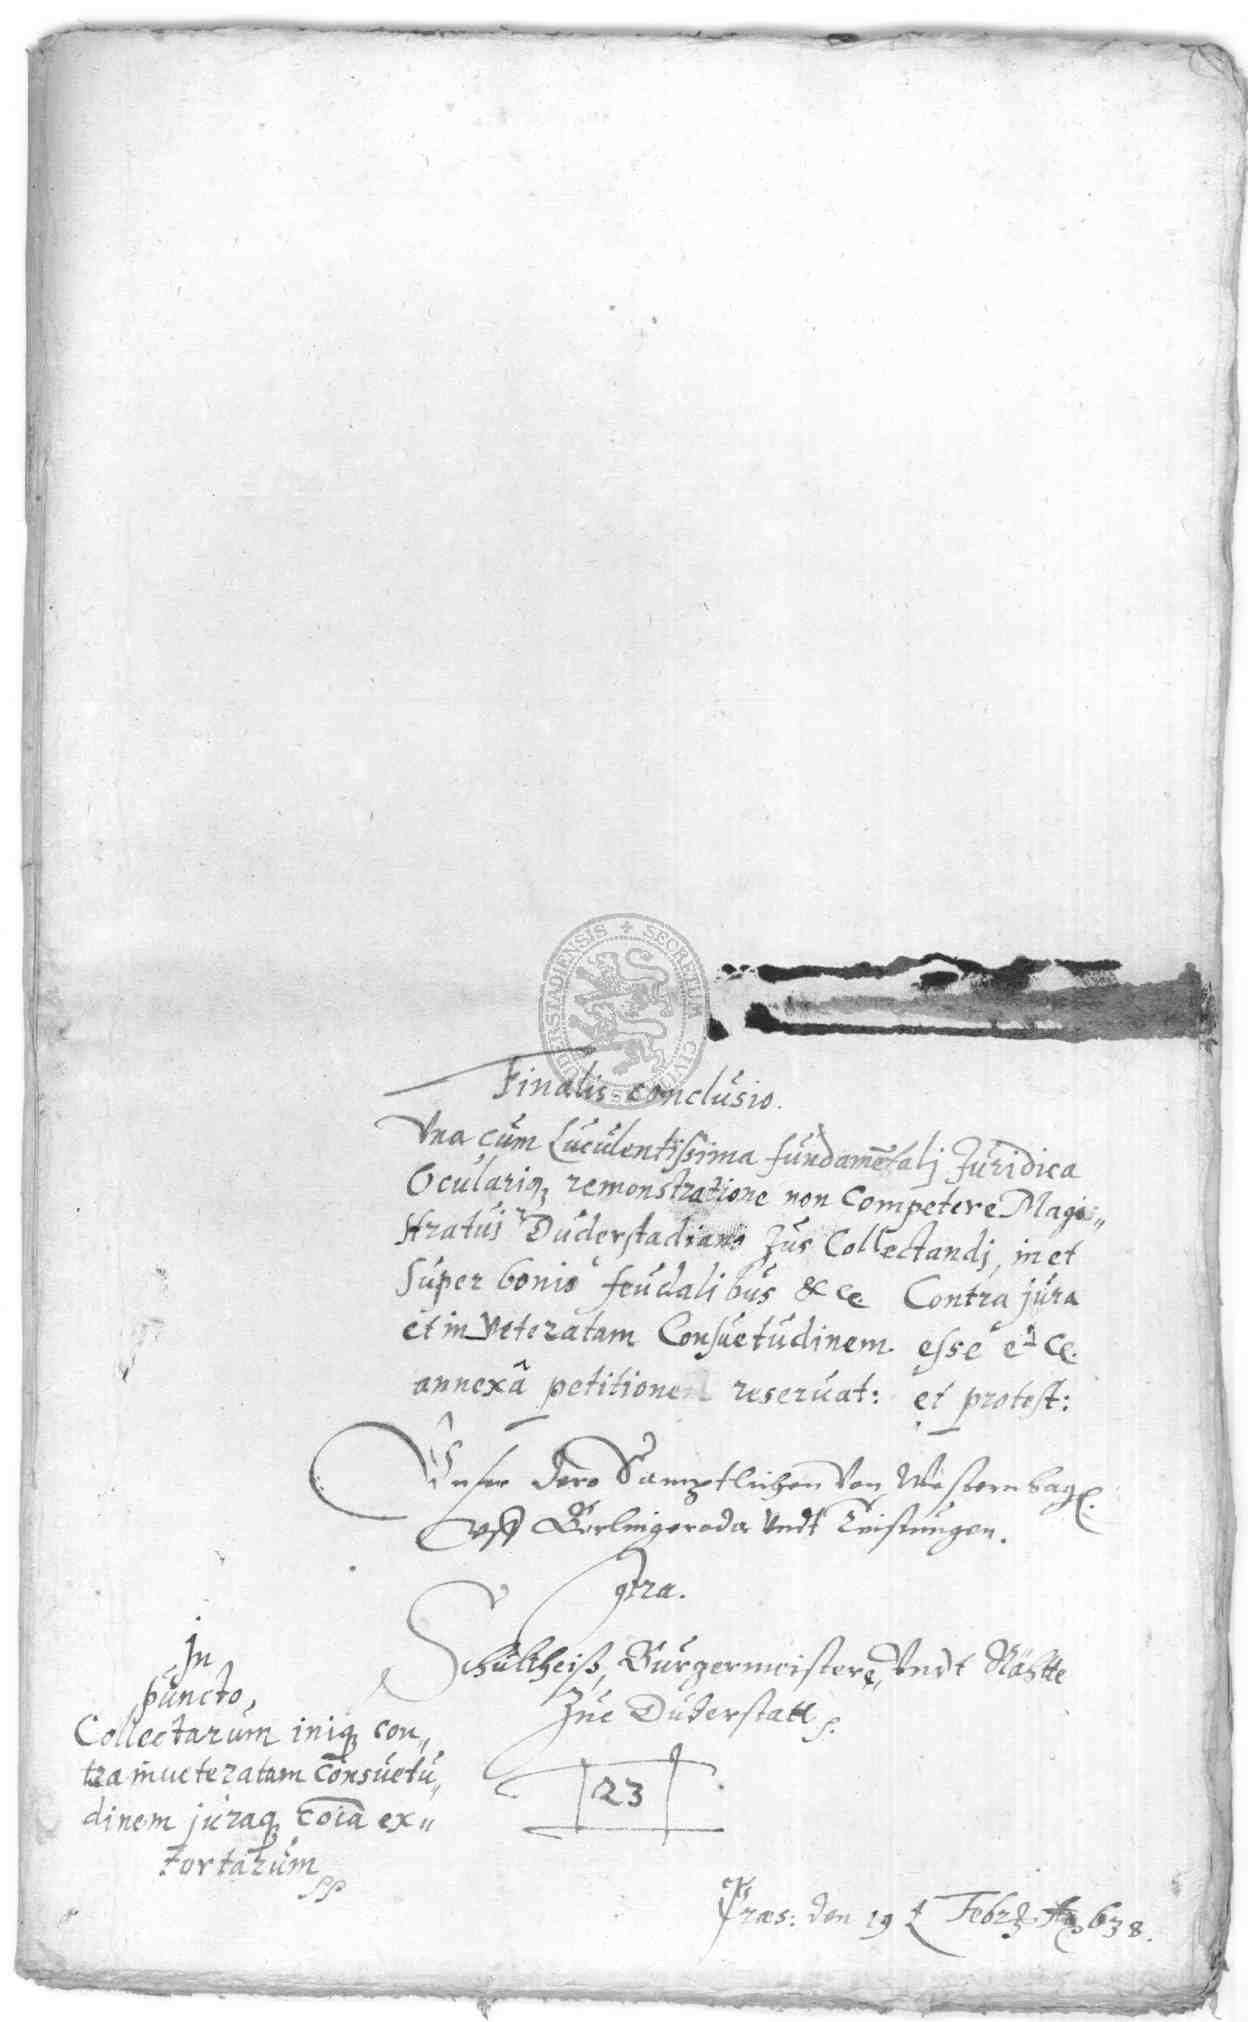 Finalis conclusio.
Vna cum Luculentissima fundamētalj Juridica
Oculariq; remonstratione non Competere Magi„
stratui Duderstadiano Jus Collectandj, in et
super bonis feudalibus &c Contra jura
et inveteratam Consuetudinem esse etc.
annexâ petitione reservat: et protest:
Unser dero Samptlichen Von Westernhag.
vff Berlingeroda Vndt Teistungen.
9tra.
Schultheiß, Burgermeistere, Vndt Rähtte
Zue Duderstatt
In
puncto,
Collectarum iniq; con„
tra inueteratam Consuetu„
dinem juraq; cōia ex„
tortarum
23
Præs: den 19 t Febr: Ao 638.